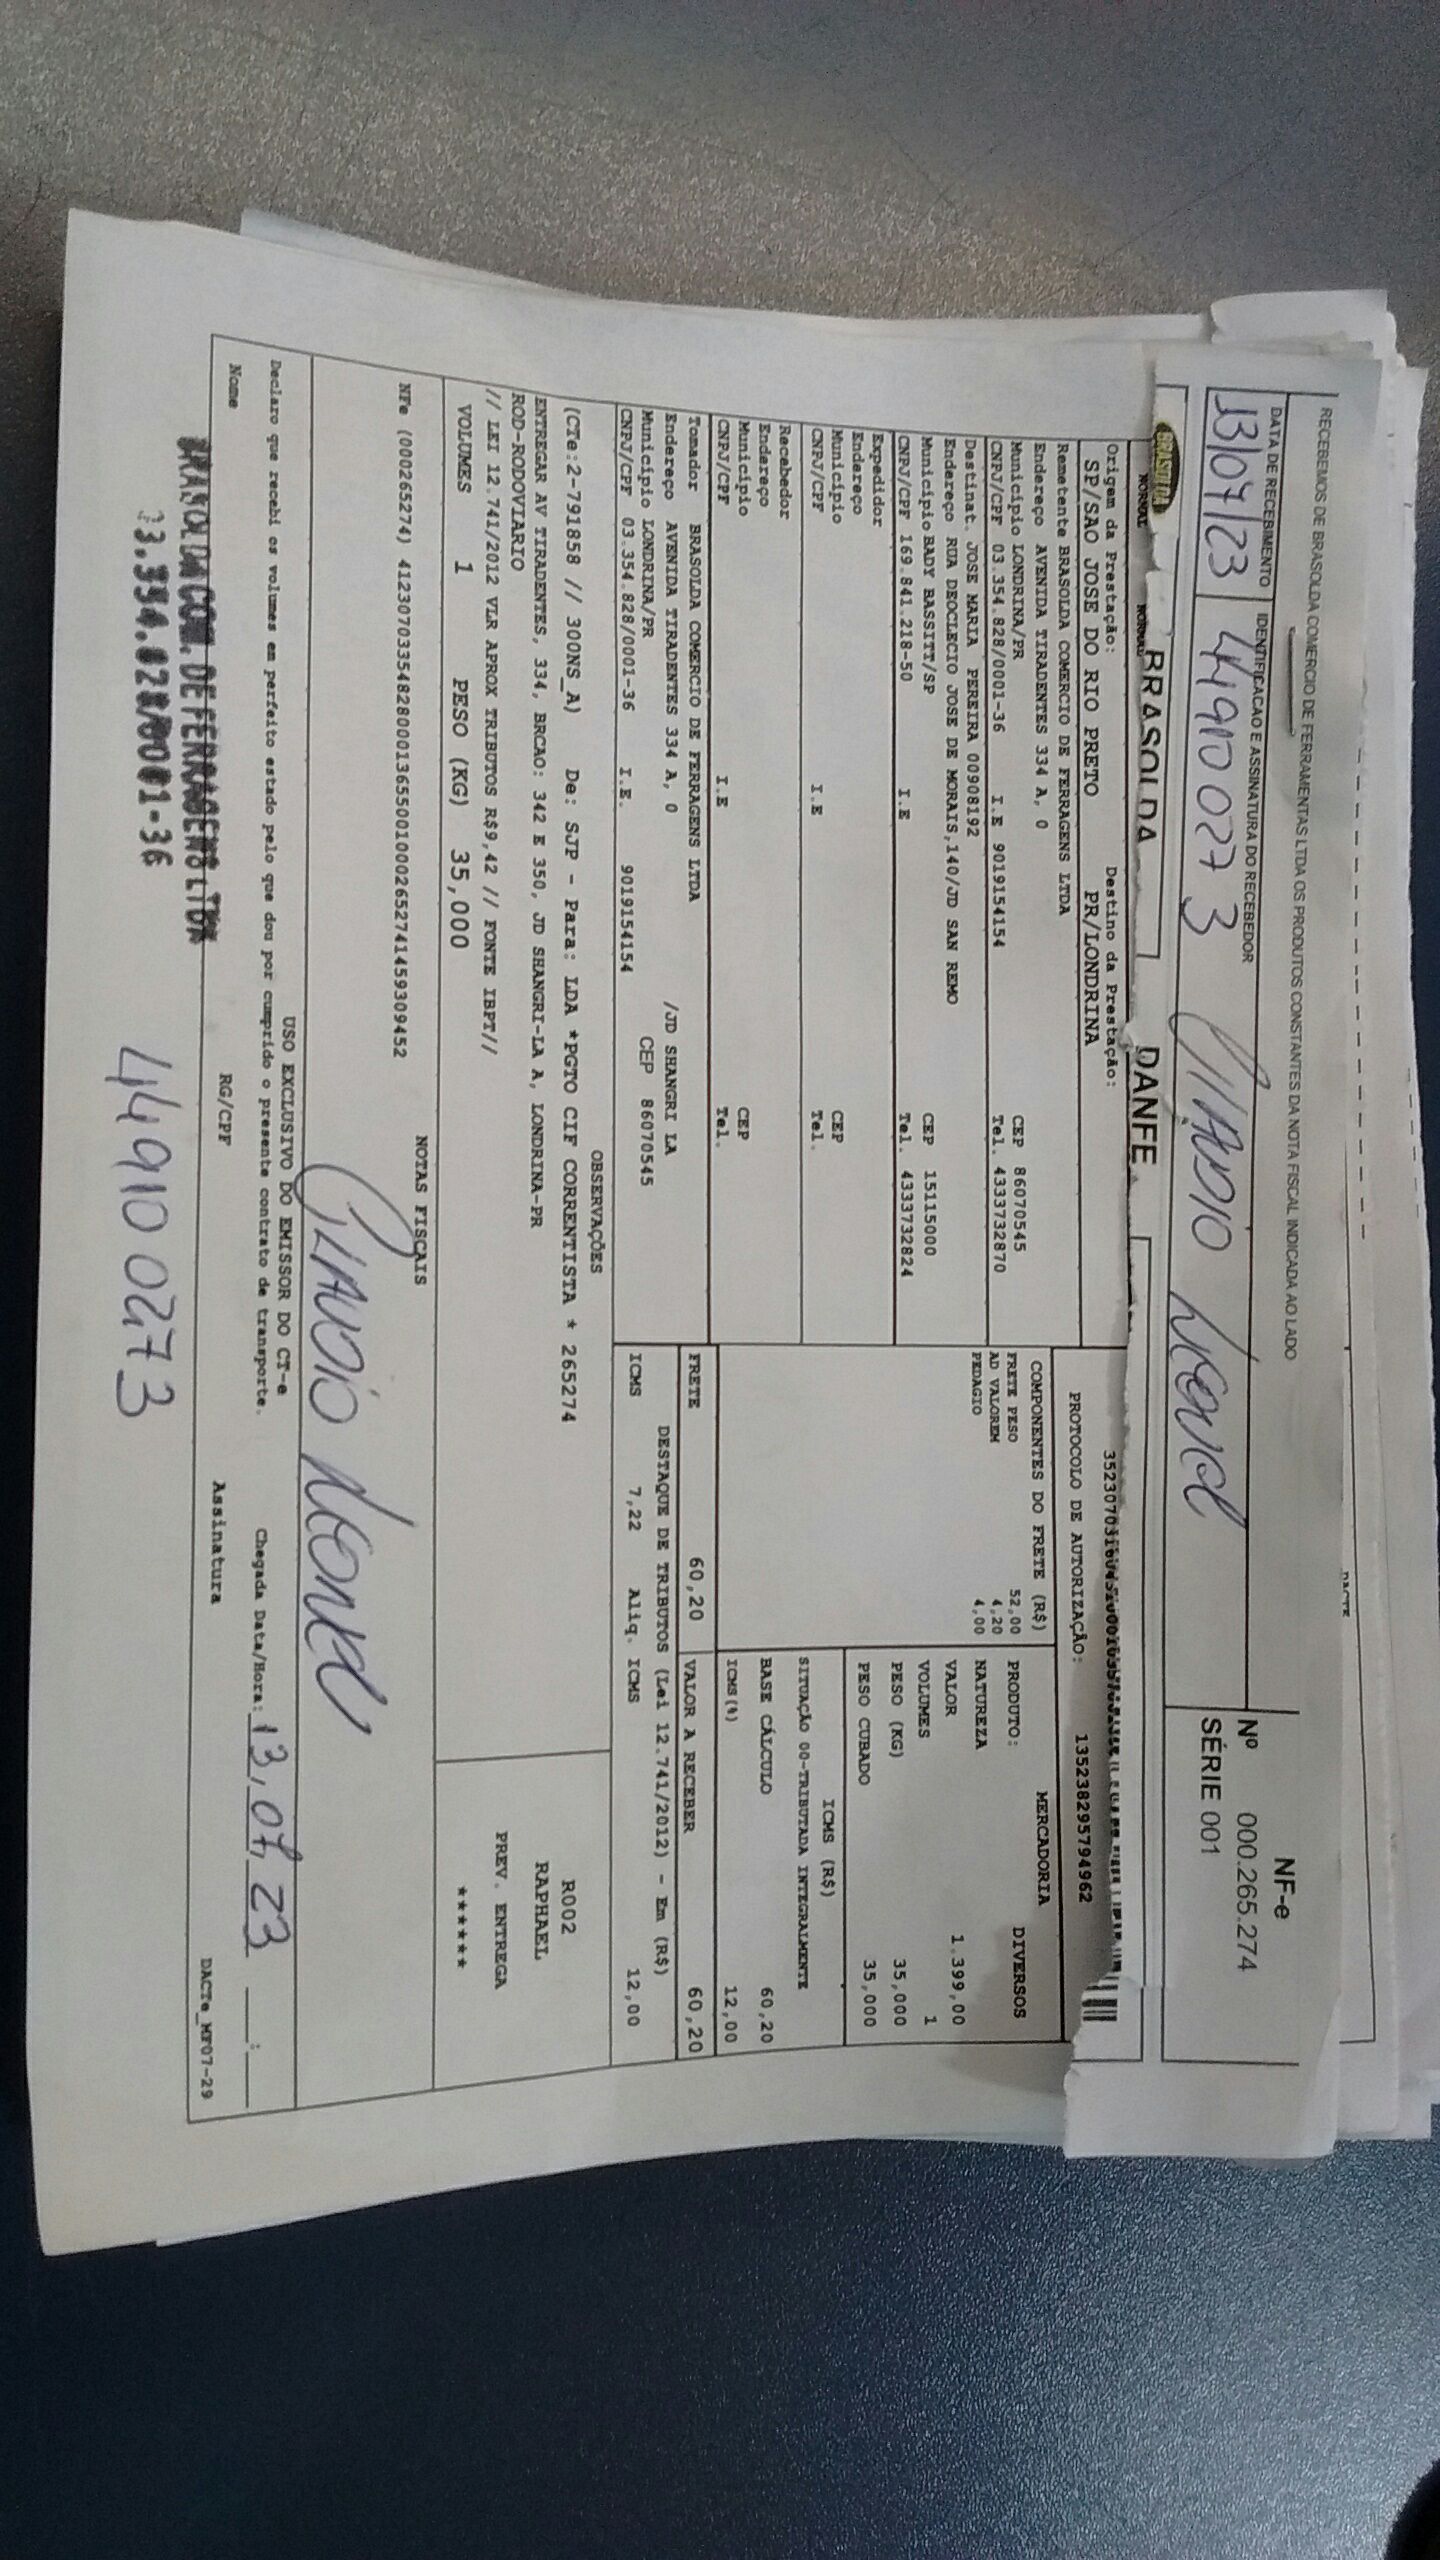 RECEBEMOS DE BRASOLDA COMERCIO DE FERRAMENTAS LTDA OS PRODUTOS CONSTANTES DA NOTA FISCAL INDICADA AO LADO
NF-e
Nº 000.265.274
SÉRIE 001
DATA DE RECEBIMENTO
IDENTIFICACAO E ASSINATURA DO RECEBEDOR
13/07/23 44910 027 3
BRASOLDA
DANFE
DACTE
NORMAL
NORMAL
PROTOCOLO DE AUTORIZAÇÃO: 135238295794962
Origem da Prestação:
SP/SAO JOSE DO RIO PRETO
Destino da Prestação:
PR/LONDRINA
Remetente BRASOLDA COMERCIO DE FERRAGENS LTDA
Endereço AVENIDA TIRADENTES 334 A, 0
Município LONDRINA/PR CEP 86070545
CNPJ/CPF 03.354.828/0001-36 I.E 9019154154 Tel. 4333732870
Destinat. JOSE MARIA PEREIRA 00908192
Endereço RUA DEOCLECIO JOSE DE MORAIS,140/JD SAN REMO
Município BADY BASSITT/SP CEP 15115000
CNPJ/CPF 169.841.218-50 I.E Tel. 4333732824
Expedidor
Endereço
Município CEP
CNPJ/CPF I.E Tel.
Recebedor
Endereço
Município CEP
CNPJ/CPF I.E Tel.
Tomador BRASOLDA COMERCIO DE FERRAGENS LTDA
Endereço AVENIDA TIRADENTES 334 A, 0 /JD SHANGRI LA
Município LONDRINA/PR CEP 86070545
CNPJ/CPF 03.354.828/0001-36 I.E. 9019154154
COMPONENTES DO FRETE (R$)
FRETE PESO 52,00
AD VALOREM 4,20
PEDAGIO 4,00
MERCADORIA
PRODUTO: DIVERSOS
NATUREZA
VALOR 1.399,00
VOLUMES 1
PESO (KG) 35,000
PESO CUBADO 35,000
ICMS (R$)
SITUAÇÃO 00-TRIBUTADA INTEGRALMENTE
BASE CÁLCULO 60,20
ICMS(%) 12,00
FRETE 60,20
VALOR A RECEBER 60,20
DESTAQUE DE TRIBUTOS (Lei 12.741/2012) - Em (R$)
ICMS 7,22 Aliq. ICMS 12,00
OBSERVAÇÕES
(CTe:2-791858 // 300NS_A) De: SJP - Para: LDA *PGTO CIF CORRENTISTA * 265274
ENTREGAR AV TIRADENTES, 334, BRCAO: 342 E 350, JD SHANGRI-LA A, LONDRINA-PR
ROD-RODOVIARIO
// LEI 12.741/2012 VLR APROX TRIBUTOS R$9,42 // FONTE IBPT//
R002
RAPHAEL
PREV. ENTREGA
******
VOLUMES 1 PESO (KG) 35,000
NOTAS FISCAIS
NFe (000265274) 41230703354828000136550010002652741459309452
USO EXCLUSIVO DO EMISSOR DO CT-e
Declaro que recebi os volumes em perfeito estado pelo que dou por cumprido o presente contrato de transporte.
Chegada Data/Hora: 13, 07, 23 __:__
Nome RG/CPF Assinatura
DACTe_MF07-29
BRASOLDA COM. DE FERRAGENS LTDA
03.354.828/0001-36
44910 0273